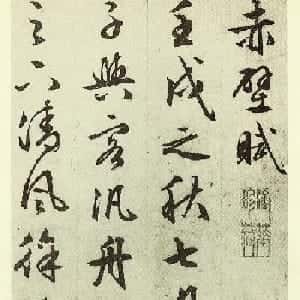 赤壁賦
壬戌之秋七月
子與客汎舟
之下清風徐